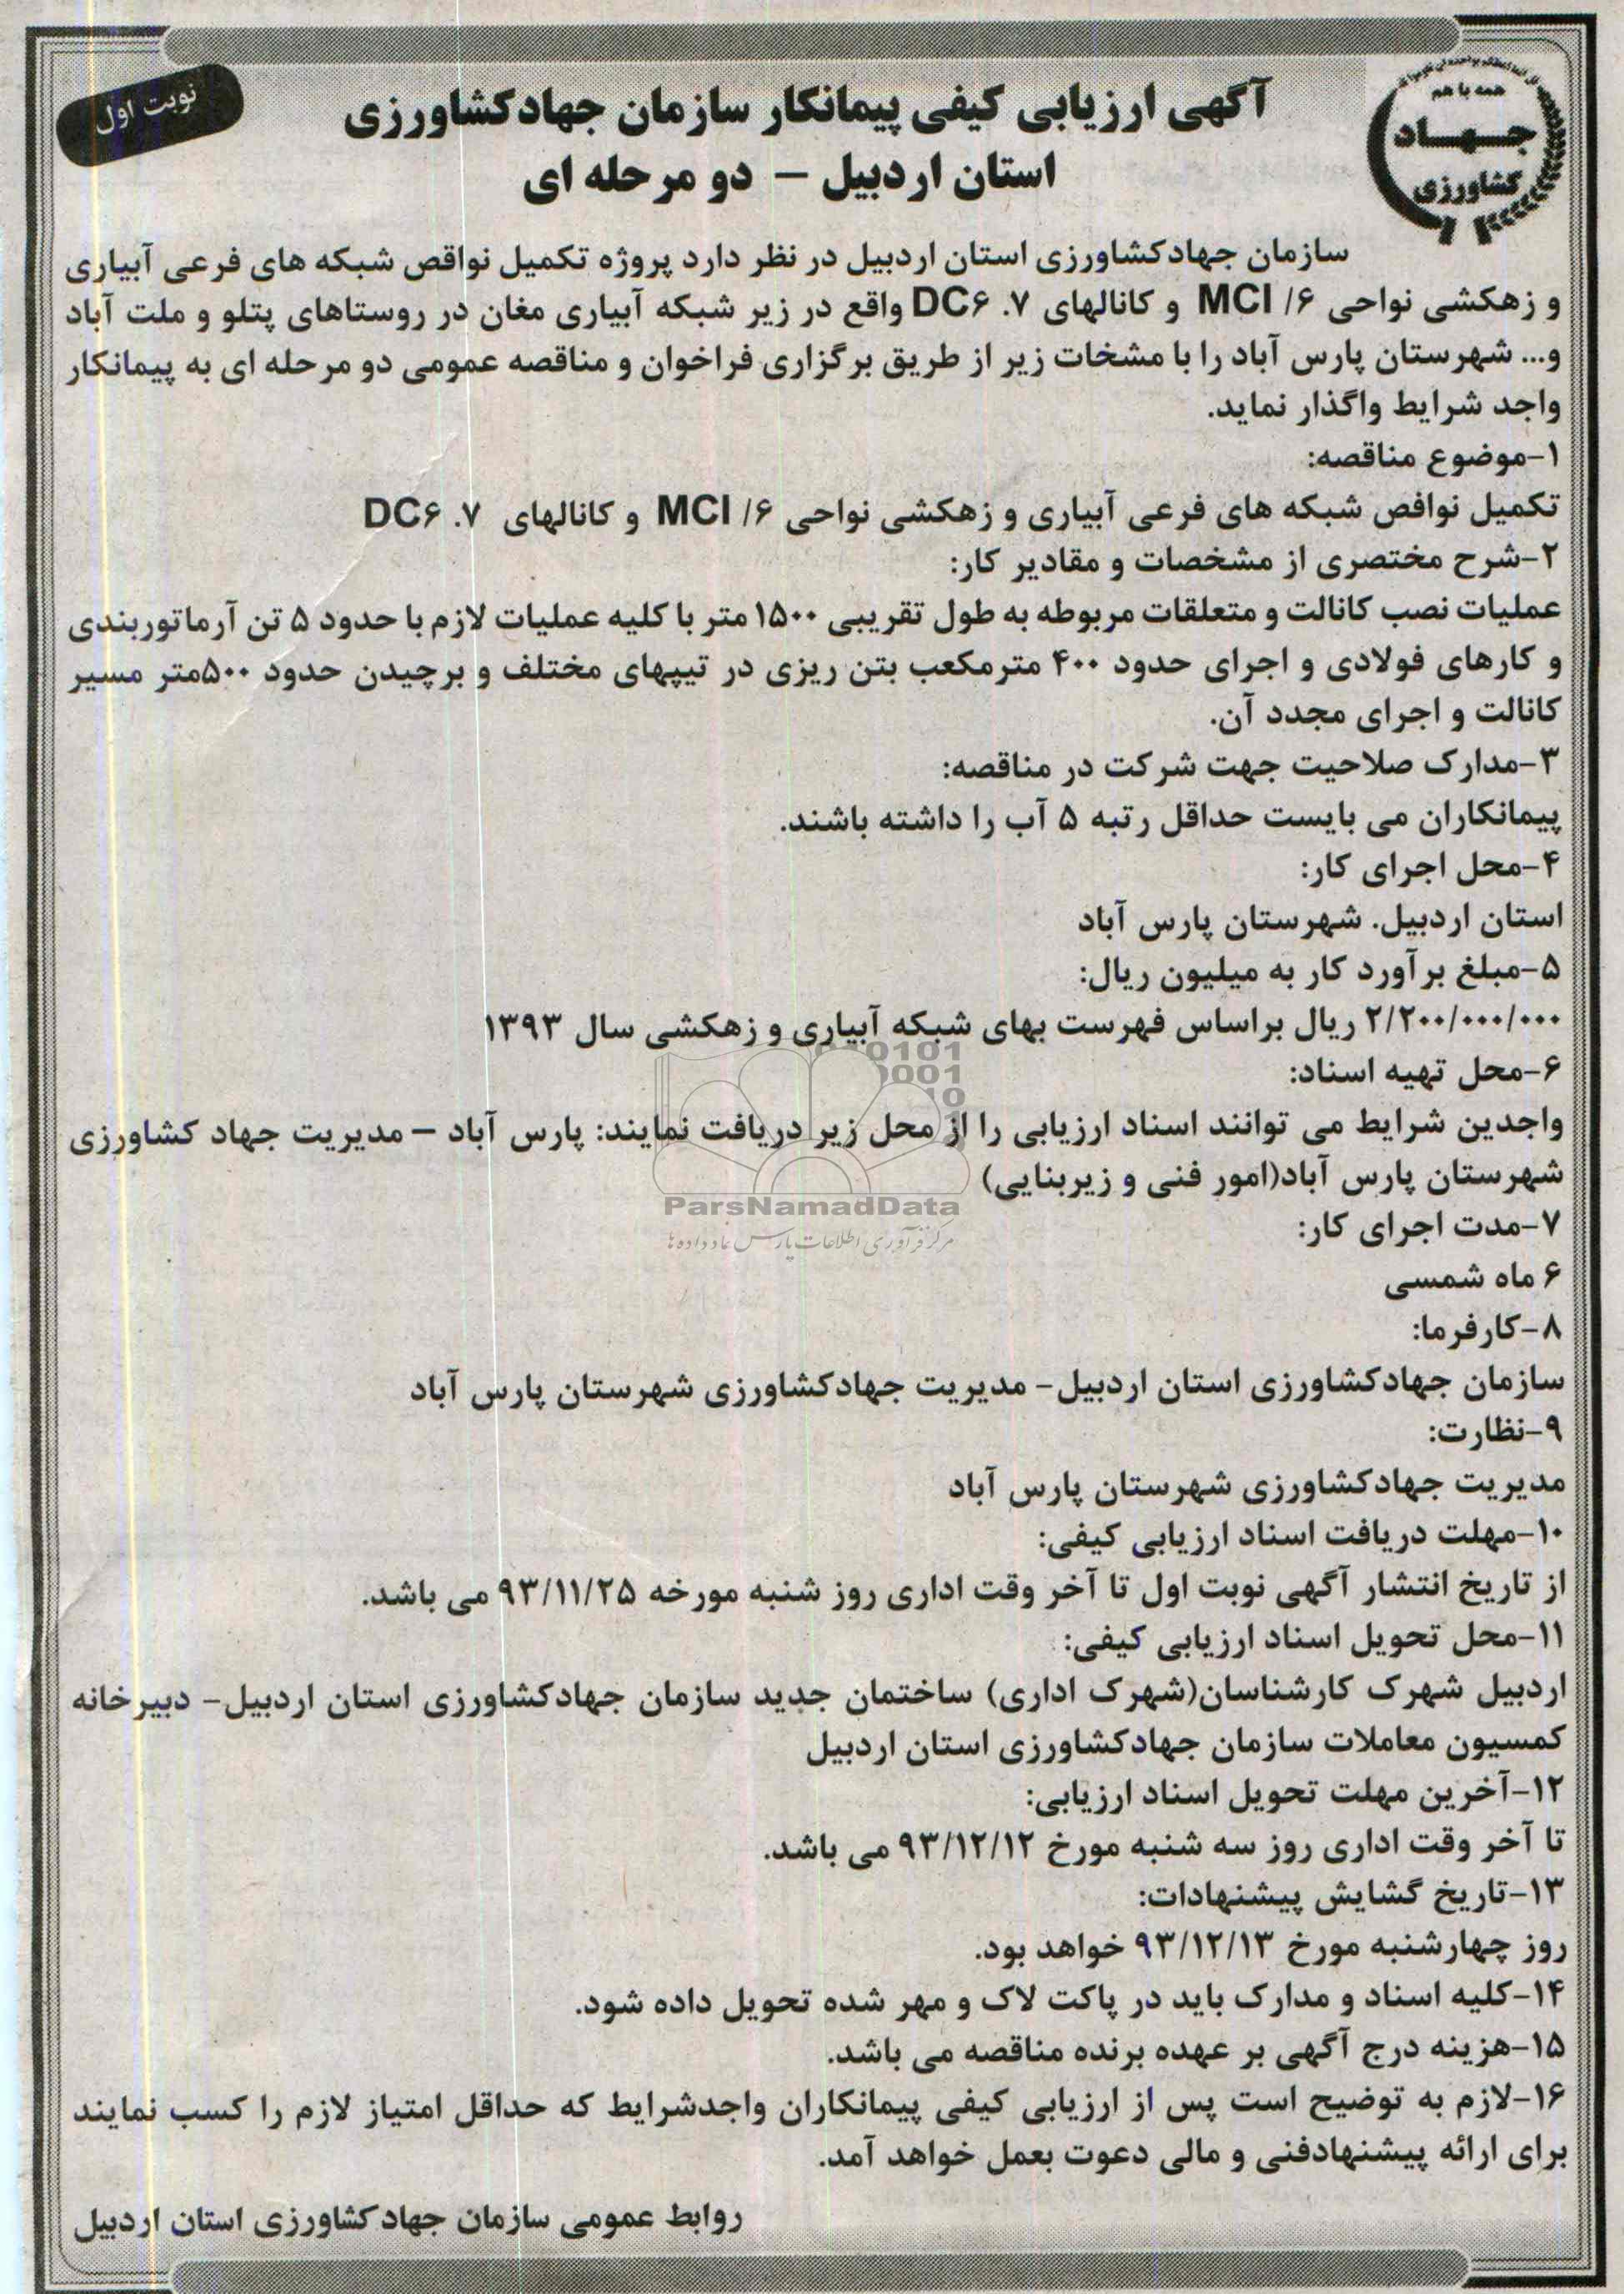 همه با هم
جهاد
کشاورزی
نوبت اول
آگهی ارزیابی کیفی پیمانکار سازمان جهادکشاورزی
استان اردبیل – دو مرحله ای
سازمان جهادکشاورزی استان اردبیل در نظر دارد پروژه تکمیل نواقص شبکه های فرعی آبیاری
و زهکشی نواحی ۶/ MCI و کانالهای ۷. DC۶ واقع در زیر شبکه آبیاری مغان در روستاهای پتلو و ملت آباد
و... شهرستان پارس آباد را با مشخات زیر از طریق برگزاری فراخوان و مناقصه عمومی دو مرحله ای به پیمانکار
واجد شرایط واگذار نماید.
۱-موضوع مناقصه:
تکمیل نوافص شبکه های فرعی آبیاری و زهکشی نواحی ۶/ MCI و کانالهای ۷. DC۶
۲-شرح مختصری از مشخصات و مقادیر کار:
عملیات نصب کانالت و متعلقات مربوطه به طول تقریبی ۱۵۰۰ متر با کلیه عملیات لازم با حدود ۵ تن آرماتوربندی
و کارهای فولادی و اجرای حدود ۴۰۰ مترمکعب بتن ریزی در تیپهای مختلف و برچیدن حدود ۵۰۰متر مسیر
کانالت و اجرای مجدد آن.
۳-مدارک صلاحیت جهت شرکت در مناقصه:
پیمانکاران می بایست حداقل رتبه ۵ آب را داشته باشند.
۴-محل اجرای کار:
استان اردبیل. شهرستان پارس آباد
۵-مبلغ برآورد کار به میلیون ریال:
۲/۲۰۰/۰۰۰/۰۰۰ ریال براساس فهرست بهای شبکه آبیاری و زهکشی سال ۱۳۹۳
۶-محل تهیه اسناد:
واجدین شرایط می توانند اسناد ارزیابی را از محل زیر دریافت نمایند: پارس آباد – مدیریت جهاد کشاورزی
شهرستان پارس آباد(امور فنی و زیربنایی)
ParsNamadData
مرکز فرآوری اطلاعات پارس نماد داده ها
۷-مدت اجرای کار:
۶ ماه شمسی
۸-کارفرما:
سازمان جهادکشاورزی استان اردبیل- مدیریت جهادکشاورزی شهرستان پارس آباد
۹-نظارت:
مدیریت جهادکشاورزی شهرستان پارس آباد
۱۰-مهلت دریافت اسناد ارزیابی کیفی:
از تاریخ انتشار آگهی نوبت اول تا آخر وقت اداری روز شنبه مورخه ۹۳/۱۱/۲۵ می باشد.
۱۱-محل تحویل اسناد ارزیابی کیفی:
اردبیل شهرک کارشناسان(شهرک اداری) ساختمان جدید سازمان جهادکشاورزی استان اردبیل- دبیرخانه
کمسیون معاملات سازمان جهادکشاورزی استان اردبیل
۱۲-آخرین مهلت تحویل اسناد ارزیابی:
تا آخر وقت اداری روز سه شنبه مورخ ۹۳/۱۲/۱۲ می باشد.
۱۳-تاریخ گشایش پیشنهادات:
روز چهارشنبه مورخ ۹۳/۱۲/۱۳ خواهد بود.
۱۴-کلیه اسناد و مدارک باید در پاکت لاک و مهر شده تحویل داده شود.
۱۵-هزینه درج آگهی بر عهده برنده مناقصه می باشد.
۱۶-لازم به توضیح است پس از ارزیابی کیفی پیمانکاران واجدشرایط که حداقل امتیاز لازم را کسب نمایند
برای ارائه پیشنهادفنی و مالی دعوت بعمل خواهد آمد.
روابط عمومی سازمان جهادکشاورزی استان اردبیل